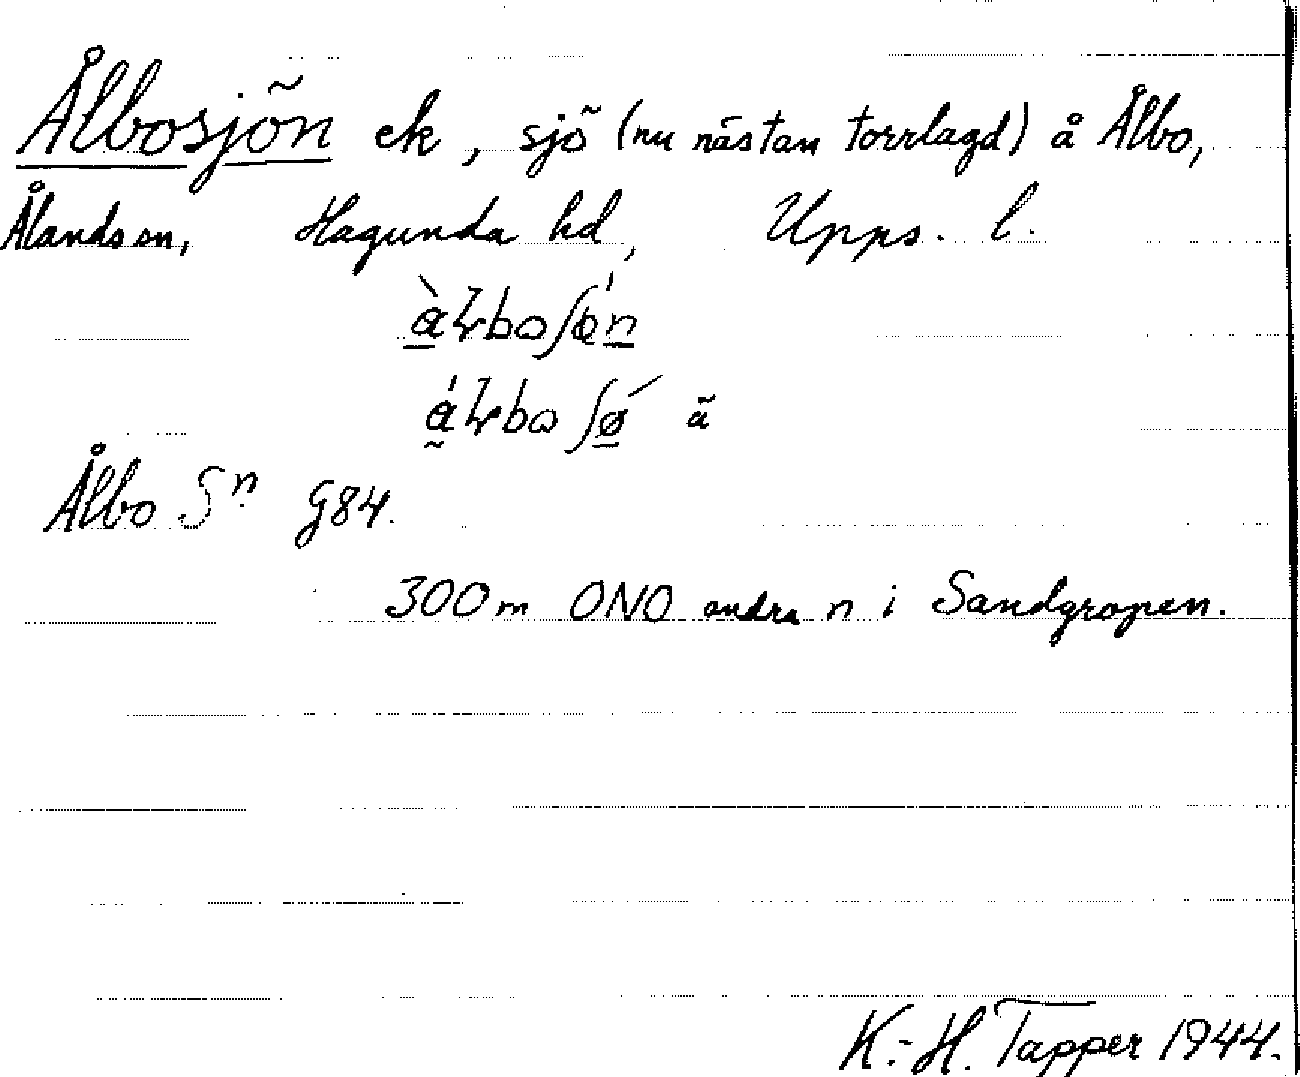 Ålbosjön ek, sjö (nu nästan torrlagd) å Ålbo,
Ålands sn, Hagunda hd, Upps. l.
ä
Ålbo Sn G84.
300m ONO andra n i Sandgropen.
K.-H. Tapper 1944.